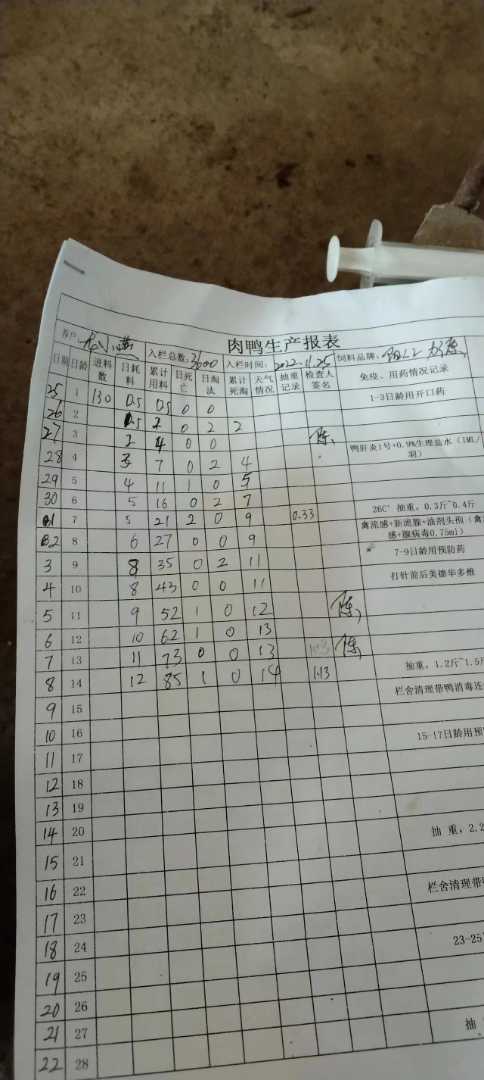 肉鸭生产报表
客户: 入栏总数: 入栏时间: 2022.11.25 饲料品牌:
日期 日龄 进料数 日耗料 累计用料 日死亡 日淘汰 累计死淘 天气情况 抽重记录 检查人签名 免疫、用药情况记录
25 1 130 0.5 0.5 0 0 1-3日龄用开口药
26 2 2 0 2 2
27 3 2 4 0 0 陈 鸭肝炎1号+0.9%生理盐水（1ML/羽）
28 4 3 7 0 2 4
29 5 4 11 1 0 5
30 6 5 16 0 2 7 26C° 抽重，0.3斤~0.4斤
7 5 21 2 0 9 0.33 禽流感+新流腺+油剂头孢（禽流感+腺病毒0.75ml）
8 6 27 0 0 9 7-9日龄用预防药
3 9 8 35 0 2 11 打针前后美德华多维
4 10 8 43 0 0 11
5 11 9 52 1 0 12 陈
6 12 10 62 1 0 13
7 13 11 73 0 0 13 陈
8 14 12 85 1 0 14 1.13 抽重，1.2斤~1.5斤
9 15 栏舍清理带鸭消毒
10 16
11 17 15-17日龄用预
12 18
13 19
14 20
15 21 抽重，2.2
16 22
17 23 栏舍清理带
18 24
19 25 23-25
20 26
21 27
22 28 抽